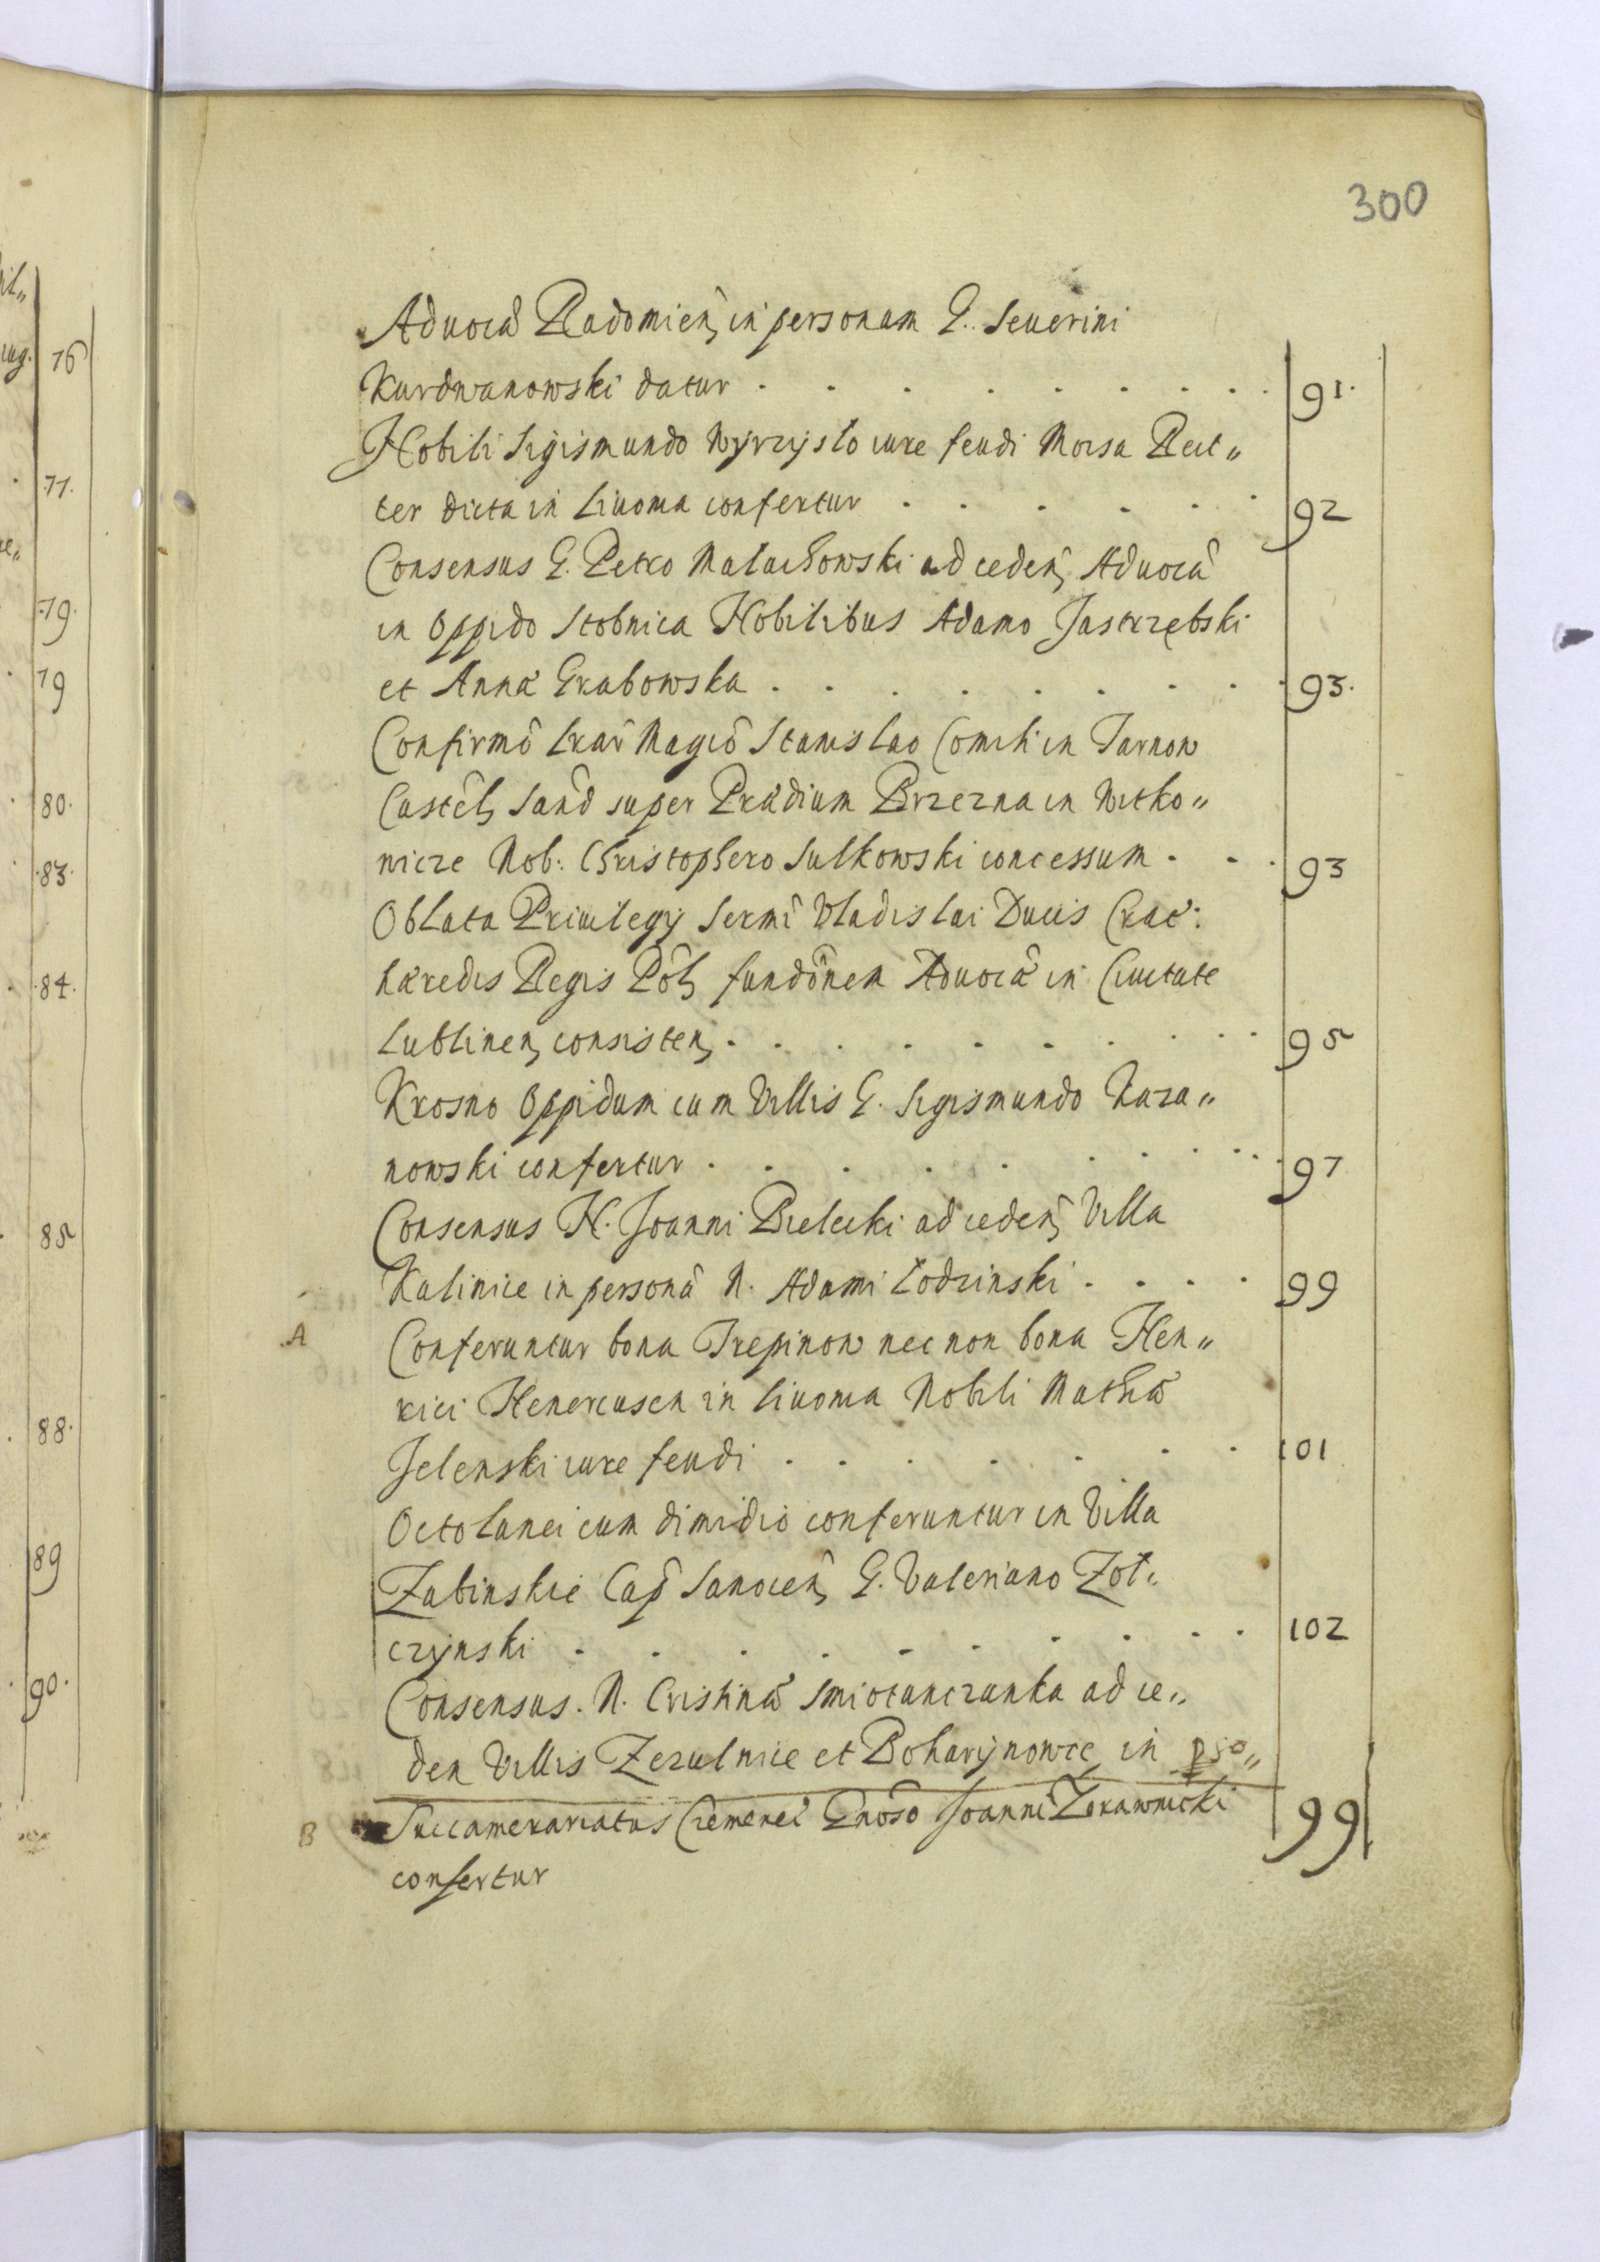 300
Aduocâ Radomien, in personam G. Seuerini
Kurdwanowski datur . . . . . . . . . 91.
Nobili Sigismundo Wyrzyslo iure feudi Moisa Reit„
ter dicta in Liuonia confertur . . . . . . 92
Consensus G. Petro Malachowski ad ceden, Aduocâ
in Oppido Stobnica Nobilibus Adamo Jastrzębski
et Anna Grabowska . . . . . . . . 93.
Confirmô Lrar Magcô Stanislao Comiti in Tarnow
Castêl, Sand super Prædium Brzezna in Witko„
wicze Nob: Christophero Sulkowski concessum . . . 93
Oblata Priuilegÿ Sermî Vladislai Ducis Crac:
hæredis Regis Pôl, fundônem Aduocâ in Ciuitate
Lublinen, consisten, . . . . . . . . . 95
Krosno Oppidum cum Villis G. Sigismundo Kaza„
nowski confertur . . . . . . . . . 97
Consensus N. Joanni Bielecki ad ceden, Villa
Kalinice in personâ N. Adami Lodzinski . . . . 99
A Conferuntur bona Trepinow nec non bona Hen„
rici Henercusen in Liuonia Nobili Mathæo
Jelenski iure feudi . . . . . . . 101
Octo lanei cum dimidio conferuntur in Villa
Zabinskie Cap Sanocen, G. Valeriano Zol„
czynski . . . . . . . . . 102
Consensus. N. Cristinæ Smiotanczanka ad ce„
den Villis Zezulnice et Boharÿnowce in pso„
B Succamerariatus Cremenec Gnoso Joanni Zorawnicki 99
confertur
76
77.
79.
79
80.
83.
84.
85
88.
89
90.